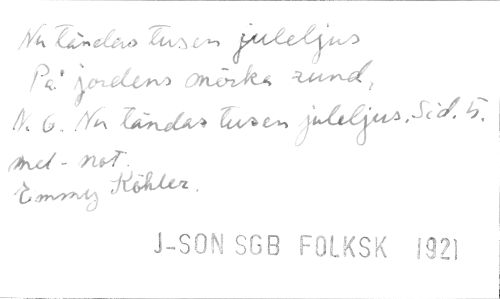 Nu tändas tusen juleljus
På jordens mörka rund,
N. 6. Nu tändas tusen juleljus. Sid. 5.
mel-not.
Emmy Köhler.
J-SON SGB FOLKSK 1921